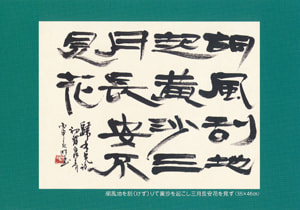 胡風刮地
起黄沙三
月長安不
見花
胡風地を刮(けず)りて黄沙を起こし三月長安花を見ず(35×46㎝)